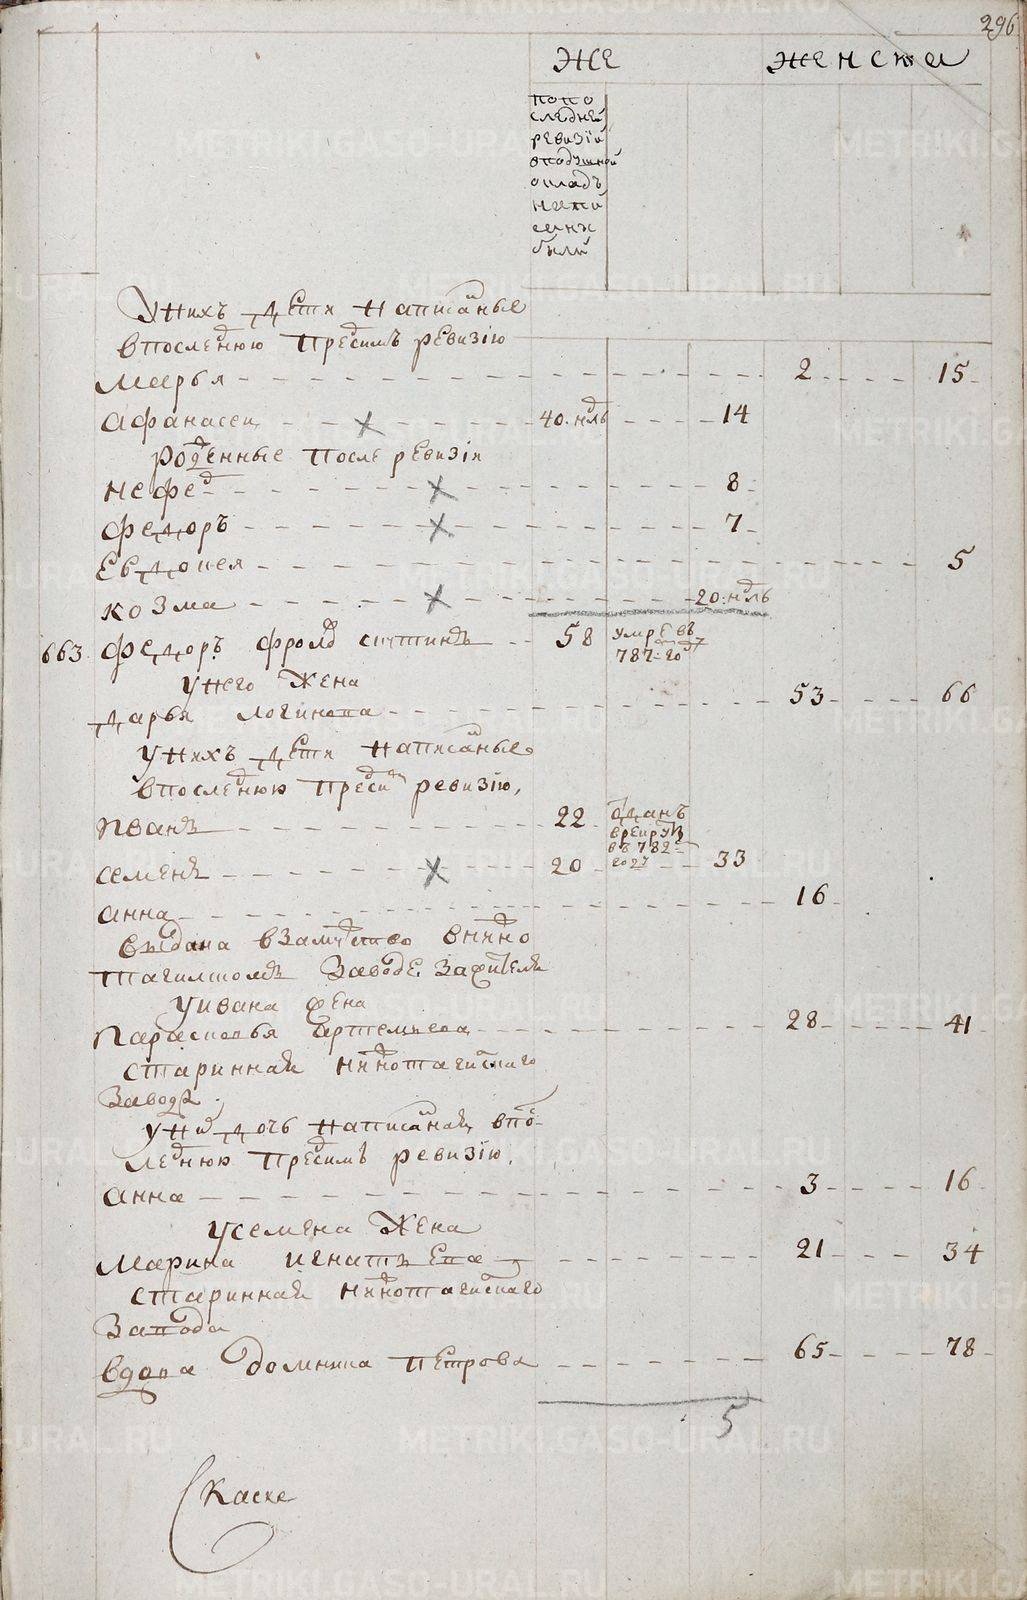 296
же женска
попо
следней
ревизіи
вподушной
окладъ
написа
ны
были
Унихъ дети написаные
впоследнюю предсимъ ревизію
марья 2 15
афанасеи 40.ндль 14
рожденные после ревизіи
нефед 8
федоръ 7
Евдокея 5
козма 20.ндль
663 федоръ фролов 58 умре въ
782=го
унего жена
дарья логинова 53 66
унихъ дети написаные
впоследнюю предсим ревизію,
иванъ 22 отданъ
врекруты
въ 782=
году
семенъ 20 33
анна 16
выдана взамужство внижно
тагилскомъ заводе за жителя
уивана жена
парасковья артемьева 28 41
стариннай нижнотагилского
завода
уних дочь написаная впо-
следнюю предсимъ ревизію,
анна 3 16
усемена жена
марина игнатьева 21 34
стариннай нижнотагилского
завода
вдова домника петрова 65 78
5
Скаске